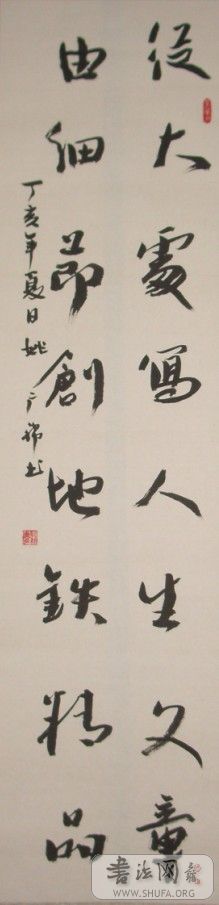 從大處寫人生文章
由細節創地鐵精品
丁亥年夏日姚广瑞书
書法网
WWW.SHUFA.ORG